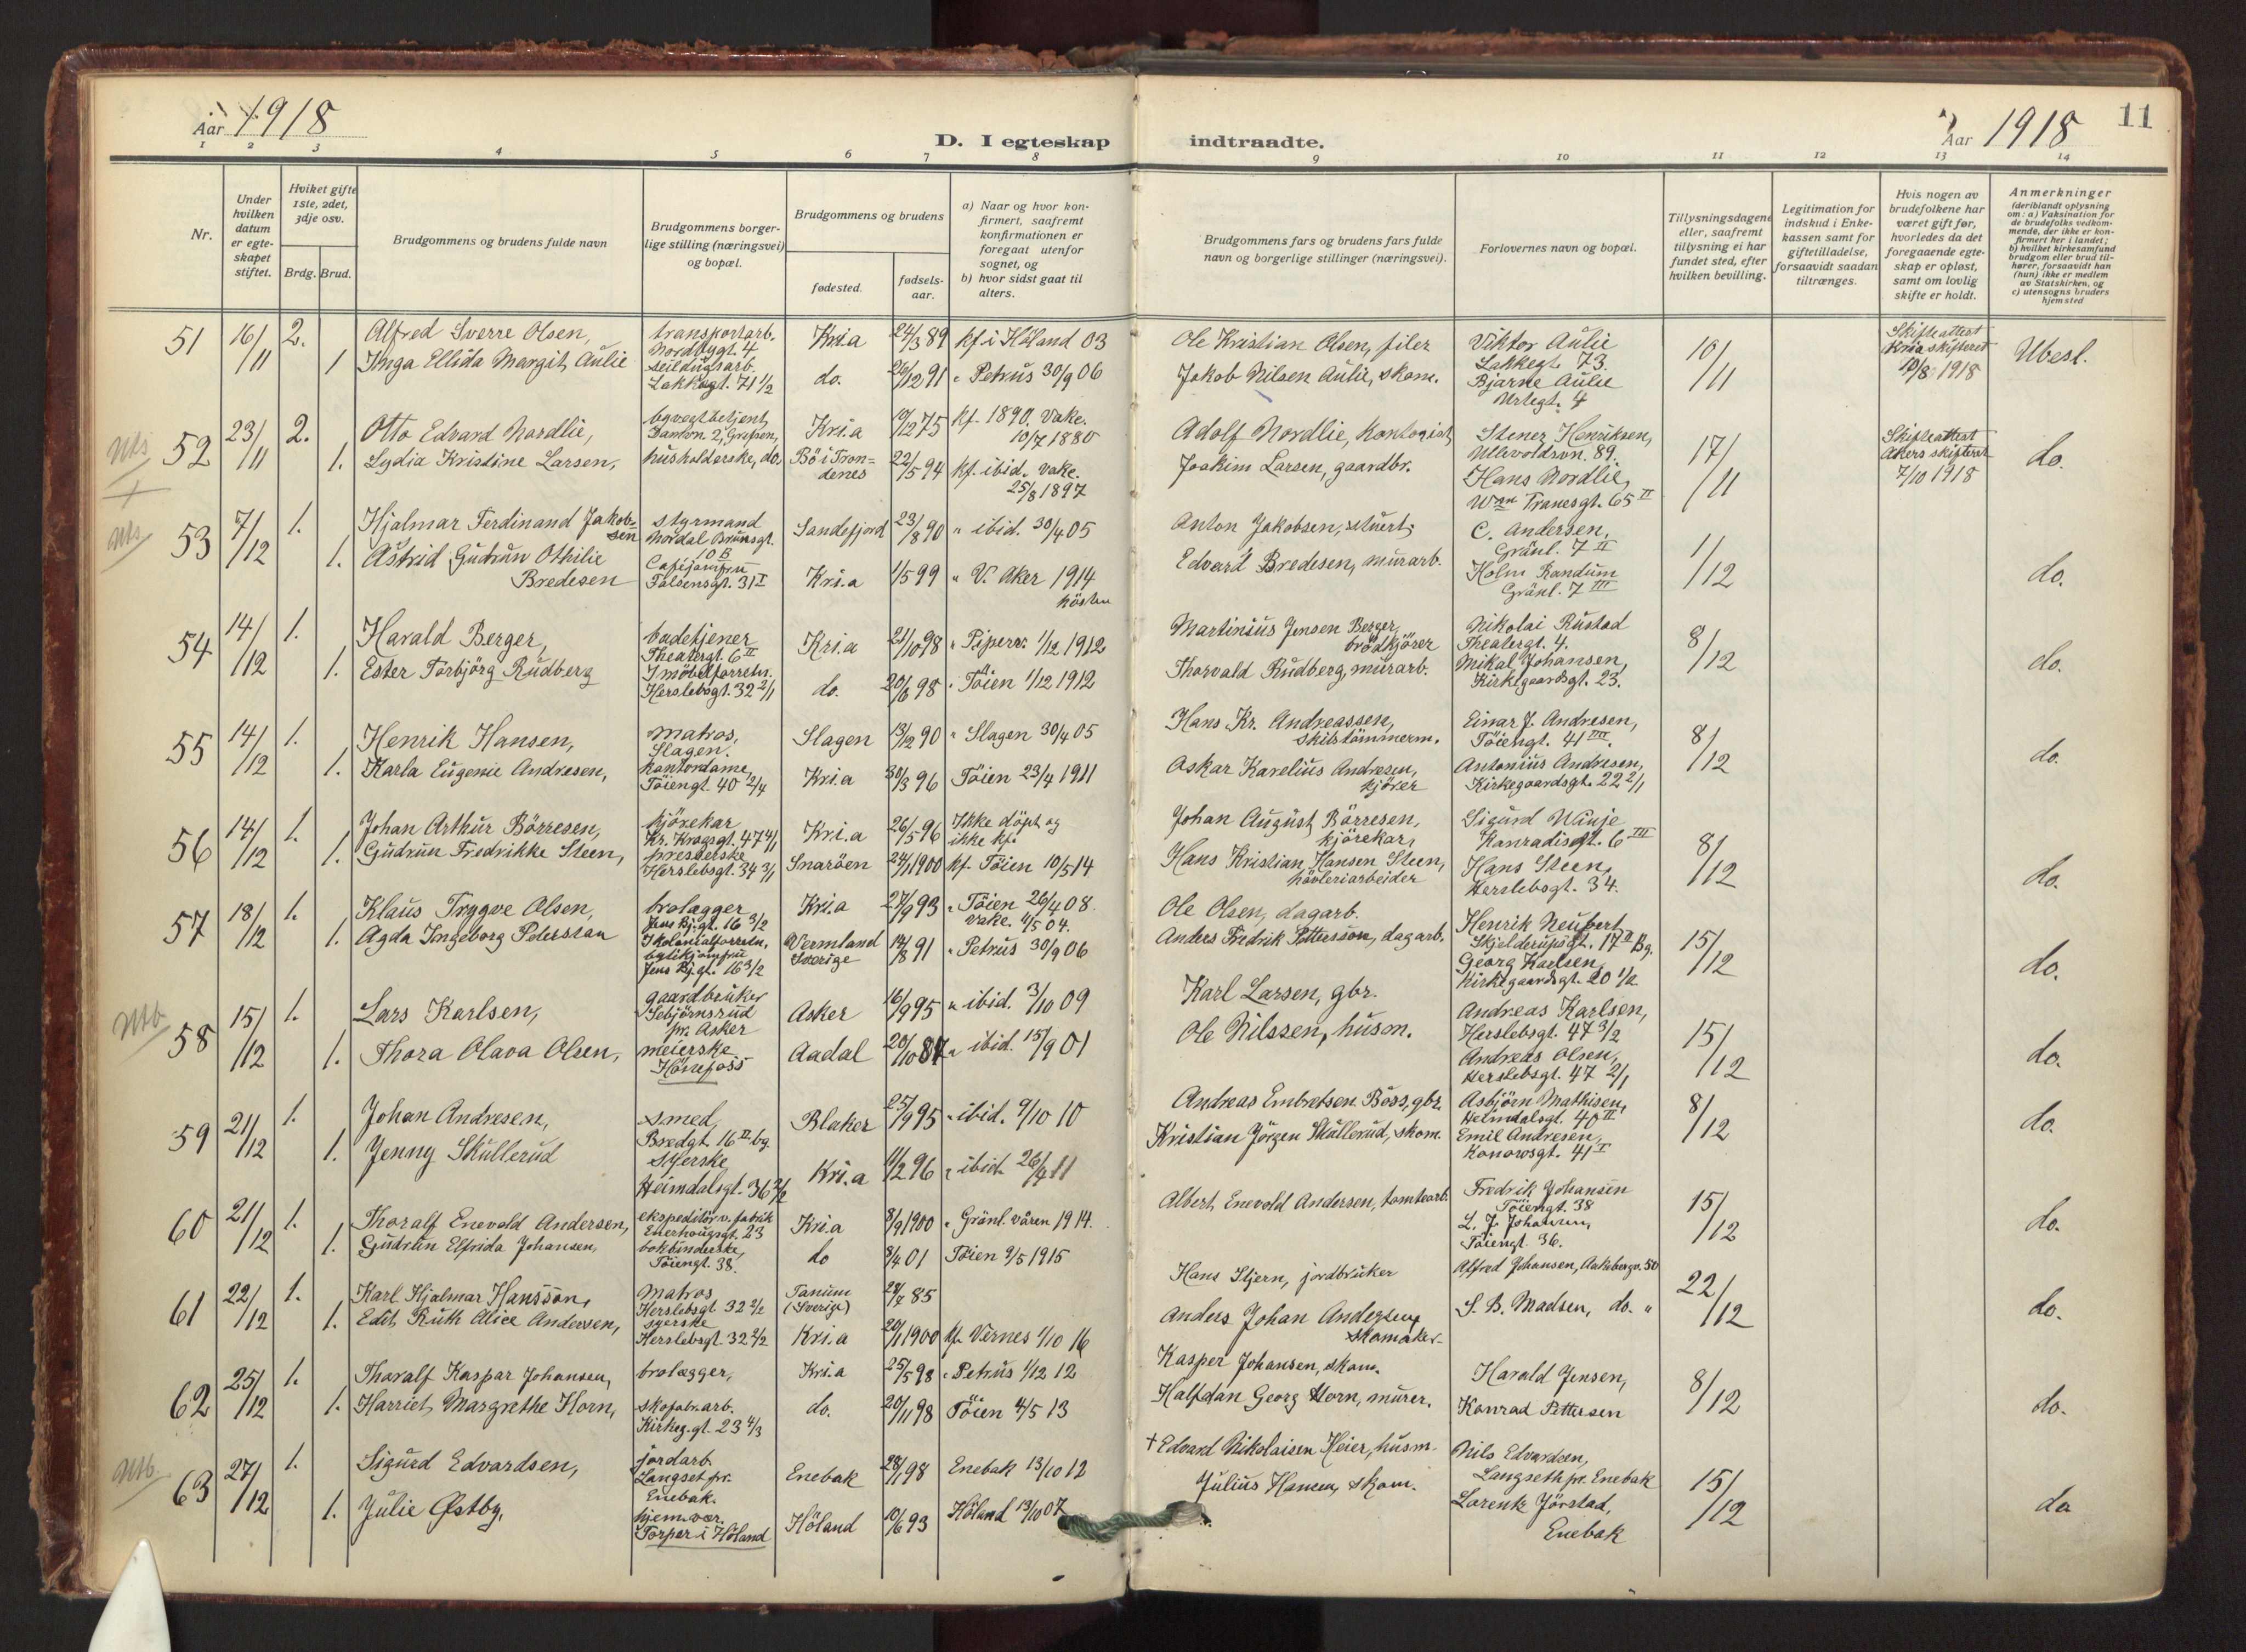 Aar 1918
D. I egteskap indtraadte.
Aar 1918
11
1 2 3 4 5 6 7 8 9 10 11 12 13 14
Nr.
Under hvilken datum er egteskapet stiftet.
Hviket gifte 1ste, 2det, 3dje osv.
Brdg. Brud.
Brudgommens og brudens fulde navn
Brudgommens borgerlige stilling (næringsvei) og bopæl.
Brudgommens og brudens
fødested.
fødselsaar.
a) Naar og hvor konfirmert, saafremt konfirmationen er foregaat utenfor sognet, og
b) hvor sidst gaat til alters.
Brudgommens fars og brudens fars fulde navn og borgerlige stillinger (næringsvei).
Forlovernes navn og bopæl.
Tillysningsdagene eller, saafremt tillysning ei har fundet sted, efter hvilken bevilling.
Legitimation for indskud i Enkekassen samt for giftetilladelse, forsaavidt saadan tiltrænges.
Hvis nogen av brudefolkene har været gift før, hvorledes da det foregaaende egteskap er opløst, samt om lovlig skifte er holdt.
Anmerkninger (deriblandt oplysning om: a) Vaksination for de brudefolks vedkommende, der ikke er konfirmert her i landet; b) hvilket kirkesamfund brudgom eller brud tilhører, forsaavidt han (hun) ikke er medlem av Statskirken, og c) utensogns bruders hjemsted
51 16/11 2. Alfred Sverre Olsen, transportarb. Nordbygt. 4 Kri.a 24/3 89 kf. i Höland 03 Ole Kristian Olsen, filer Viktor Aulie Lakkegt. 73. 10/11 Skifteattest Kria skifteret 10/8 1918 Ubesl.
1 Inga Ellida Margit Aulie seildugsarb. Lakkegt. 71 1/2 do. 26/12 91 " Petrus 30/9 06 Jakob Nilsen Aulie, skom. Bjarne Aulie Urtegt. 4
52 23/11 2. Otto Edvard Nordlie, byvegtbetjent, Grefsen, Kri.a 19/12 75 kf. 1890. Vakc. 10/7 1880 Adolf Nordlie, kontorist Stener Henriksen, Ullevoldsvn. 89. 17/11 Skifteattest Akers skifteret 7/10 1918 do.
1. Lydia Kristine Larsen, husholderske, do. Bö i Trondenes 22/5 94 kf. ibid. vakc. 25/8 1897 Joakim Larsen, gaardbr. Hans Nordlie, Wm Tranesgt. 65 II
53 7/12 1. Hjalmar Ferdinand Jakobsen styrmand Nordal Brunsgt. 10 B Sandefjord 23/8 90 " ibid. 30/4 05 Anton Jakobsen, stuert C. Andersen, Grönl. 7 II 1/12 do.
1. Astrid Gudrun Othilie Bredesen Caféjomfru Falsensgt. 31 I Kri.a 1/5 99 " V. Aker 1914 hösten Edvard Bredesen, murarb. Holm Randum Grönl. 7 III
54 14/12 1. Harald Berger, badetjener Theatergt. 6 II Kri.a 21/10 98 " Piperv. 1/12 1912 Martinius Jensen Berger, brödkjörer Nikolai Rustad Theatergt. 4. 8/12 do.
1. Ester Torbjörg Rudberg I möbelforretn. Herslebsgt. 32 2/1 do. 20/6 98 " Töien 1/12 1912 Thorvald Rudberg, murarb. Mikal Johansen, Kirkegaardsgt. 23.
55 14/12 1. Henrik Hansen, matros, Slagen. Slagen 13/12 90 " Slagen 30/4 05 Hans Kr. Andreassen, skibstömmerm. Einar J. Andresen, Töiengt. 41 III. 8/12 do.
1. Karla Eugenie Andresen, kontordame, Töiengt. 40 2/4 Kri.a 30/3 96 Töien 23/4 1911 Oskar Karelius Andresen, kjörer Antonius Andresen, Kirkegaardsgt. 22 2/1
56 14/12 1. Johan Arthur Börresen, kjörekar Kr. Krogsgt. 47 4/1 Kri.a 26/5 96 Ikke döpt og ikke kf. Johan August Börresen, kjörekar, Sigurd Winje Konradisgt. 6 III 8/12 do.
1. Gudrun Fredrikke Steen, presserske Herslebsgt. 34 3/1 Snaröen 24/1 1900 kf. Töien 10/5 14 Hans Kristian Hansen Steen, hövleriarbeider Hans Steen, Herslebsgt. 34.
57 18/12 1. Klaus Trygve Olsen, brolægger Jens Bj.gt. 16 3/2 Kri.a 27/9 93 " Töien 26/4 08. Vakc. 4/5 04. Ole Olsen, dagarb. Henrik Neubert, Skjelderupsgt. 17 II Bg. 15/12 do.
1. Agda Ingeborg Peterstan I kolonialforretn. Jens Bj.gt. 16 3/2 Vermland Sverige 14/8 91 " Petrus 30/9 06 Anders Fredrik Pettersson, dagarb. Georg Karlsen, Kirkegaardsgt. 20 1/2
58 15/12 1. Lars Karlsen, gaardbruker pr. Asker Asker 16/9 95 " ibid. 3/10 09 Karl Larsen, gbr. Andreas Karlsen, Herslebsgt. 47 3/2 15/12 do.
1. Thora Olava Olsen, meierske Hönefoss Aadal 20/10 87 " ibid. 15/9 01 Ole Nilssen, husm. Andreas Olsen, Herslebsgt. 47 2/1
59 21/12 1. Johan Andresen, smed, Bredgt. 16 II bg. Blaker 25/9 95 " ibid. 9/10 10 Andreas Embretsen Böss, gbr. Asbjörn Mathisen, Heimdalsgt. 40 II 8/12 do.
1. Jenny Skullerud syerske Heimdalsgt. 36 2/2 Kri.a 11/2 96 " ibid. 26/4 11 Kristian Jörgen Skullerud, skom. Emil Andresen, Konowsgt. 41 I
60 21/12 1. Thoralf Enevold Andersen, ekspeditör v. fabrik Enerhougsgt. 23 Kri.a 8/9 1900 " Grönl. våren 1914. Albert Enevold Andersen, tomtearb. Fredrik Johansen Töiengt. 38 15/12 do.
1. Gudrun Elfrida Johansen, bokbinderske, Töiengt. 38. do 8/4 01 Töien 9/5 1915 L. J. Johansen, Töiengt. 36.
61 22/12 1. Karl Hjalmar Hansson, Matros Herslebsgt 32 2/2 Tanum (Sverige) 28/7 85 Hans Stjern, jordbruker Alfred Johansen, Aakebergv. 50 22/12 do.
1. Edit Ruth Alice Andersen, syerske Herslebsgt. 32 2/2 Kri.a 20/1 1900 kf. Vernes 1/10 16 Anders Johan Andersen, skomaker S. B. Madsen, do. "
62 25/12 1. Thoralf Kaspar Johansen, brolægger, Kri.a 25/5 98 " Petrus 1/12 12 Kasper Johansen, skom. Harald Jensen, 8/12 do.
1. Harriet Margrethe Horn, skofabr.arb. Kirkeg.gt. 23 4/3 do. 20/11 98 Töien 4/5 13 Halfdan Georg Horn, murer. Konrad Pettersen
63 27/12 1. Sigurd Edvardsen, jordarb. Langset pr. Enebak. Enebak 28/1 98 Enebak 13/10 12 † Edvard Nikolaisen Heier, husm. Nils Edvardsen, Langseth pr. Enebak 15/12 do
1. Julie Østby, hjemvær. Torper i Höland Höland 10/6 93 Höland 13/10 07 Julius Hansen, skom. Lorentz Jörstad, Enebak